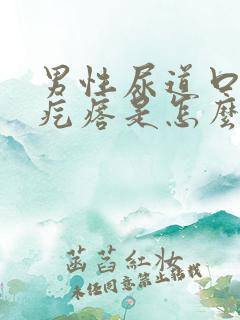 男性尿道口
疙瘩是怎麼
菡萏紅妝
未经同意禁止转载